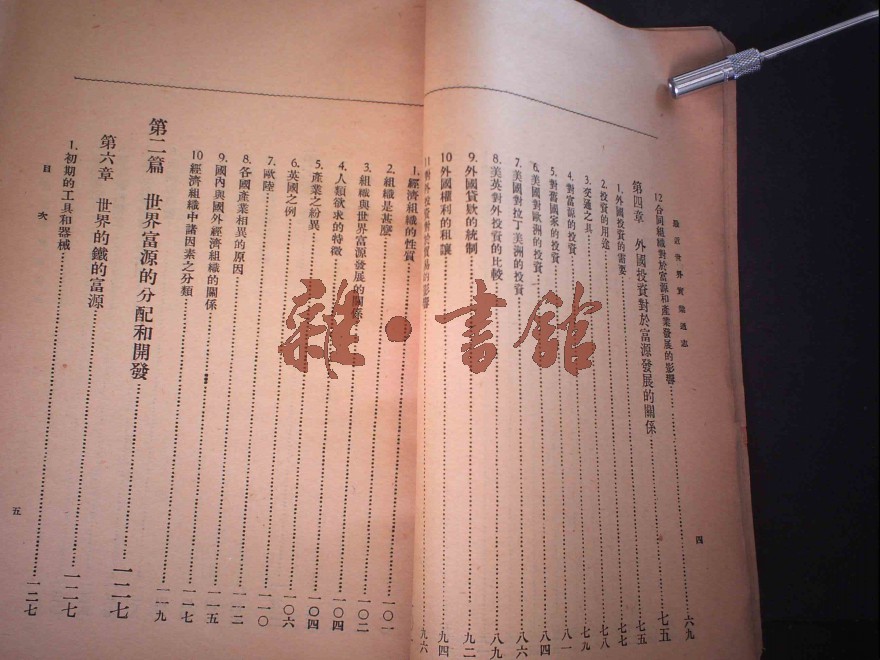 最近世界實業通志
12 合同組織對於富源和產業發展的影響……六九
第四章 外國投資對於富源發展的關係……七五
1. 外國投資的需要……七五
2. 投資的用途……七七
3. 交通之具……七八
4. 對富源的投資……七九
5. 對舊國家的投資……八一
6. 美國對歐洲的投資……八四
7. 美國對拉丁美洲的投資……八六
8. 美英對外投資的比較……八九
9. 外國貸款的統制……九二
10 外國權利的租讓……九四
11 對外投資對於貿易的影響……九六
四
1. 經濟組織的性質……一〇一
2. 組織是甚麼……一〇二
3. 組織與世界富源發展的關係……一〇四
4. 人類欲求的特徵……一〇四
5. 產業之紛異……一〇六
6. 英國之例……一一〇
7. 歐陸……一一二
8. 各國產業相異的原因……一一五
9. 國內與國外經濟組織的關係……一一七
10 經濟組織中諸因素之分類……一一九
第二篇 世界富源的分配和開發……一二七
第六章 世界的鐵的富源……一二七
1. 初期的工具和器械……一二七
目次
五
雜·書館